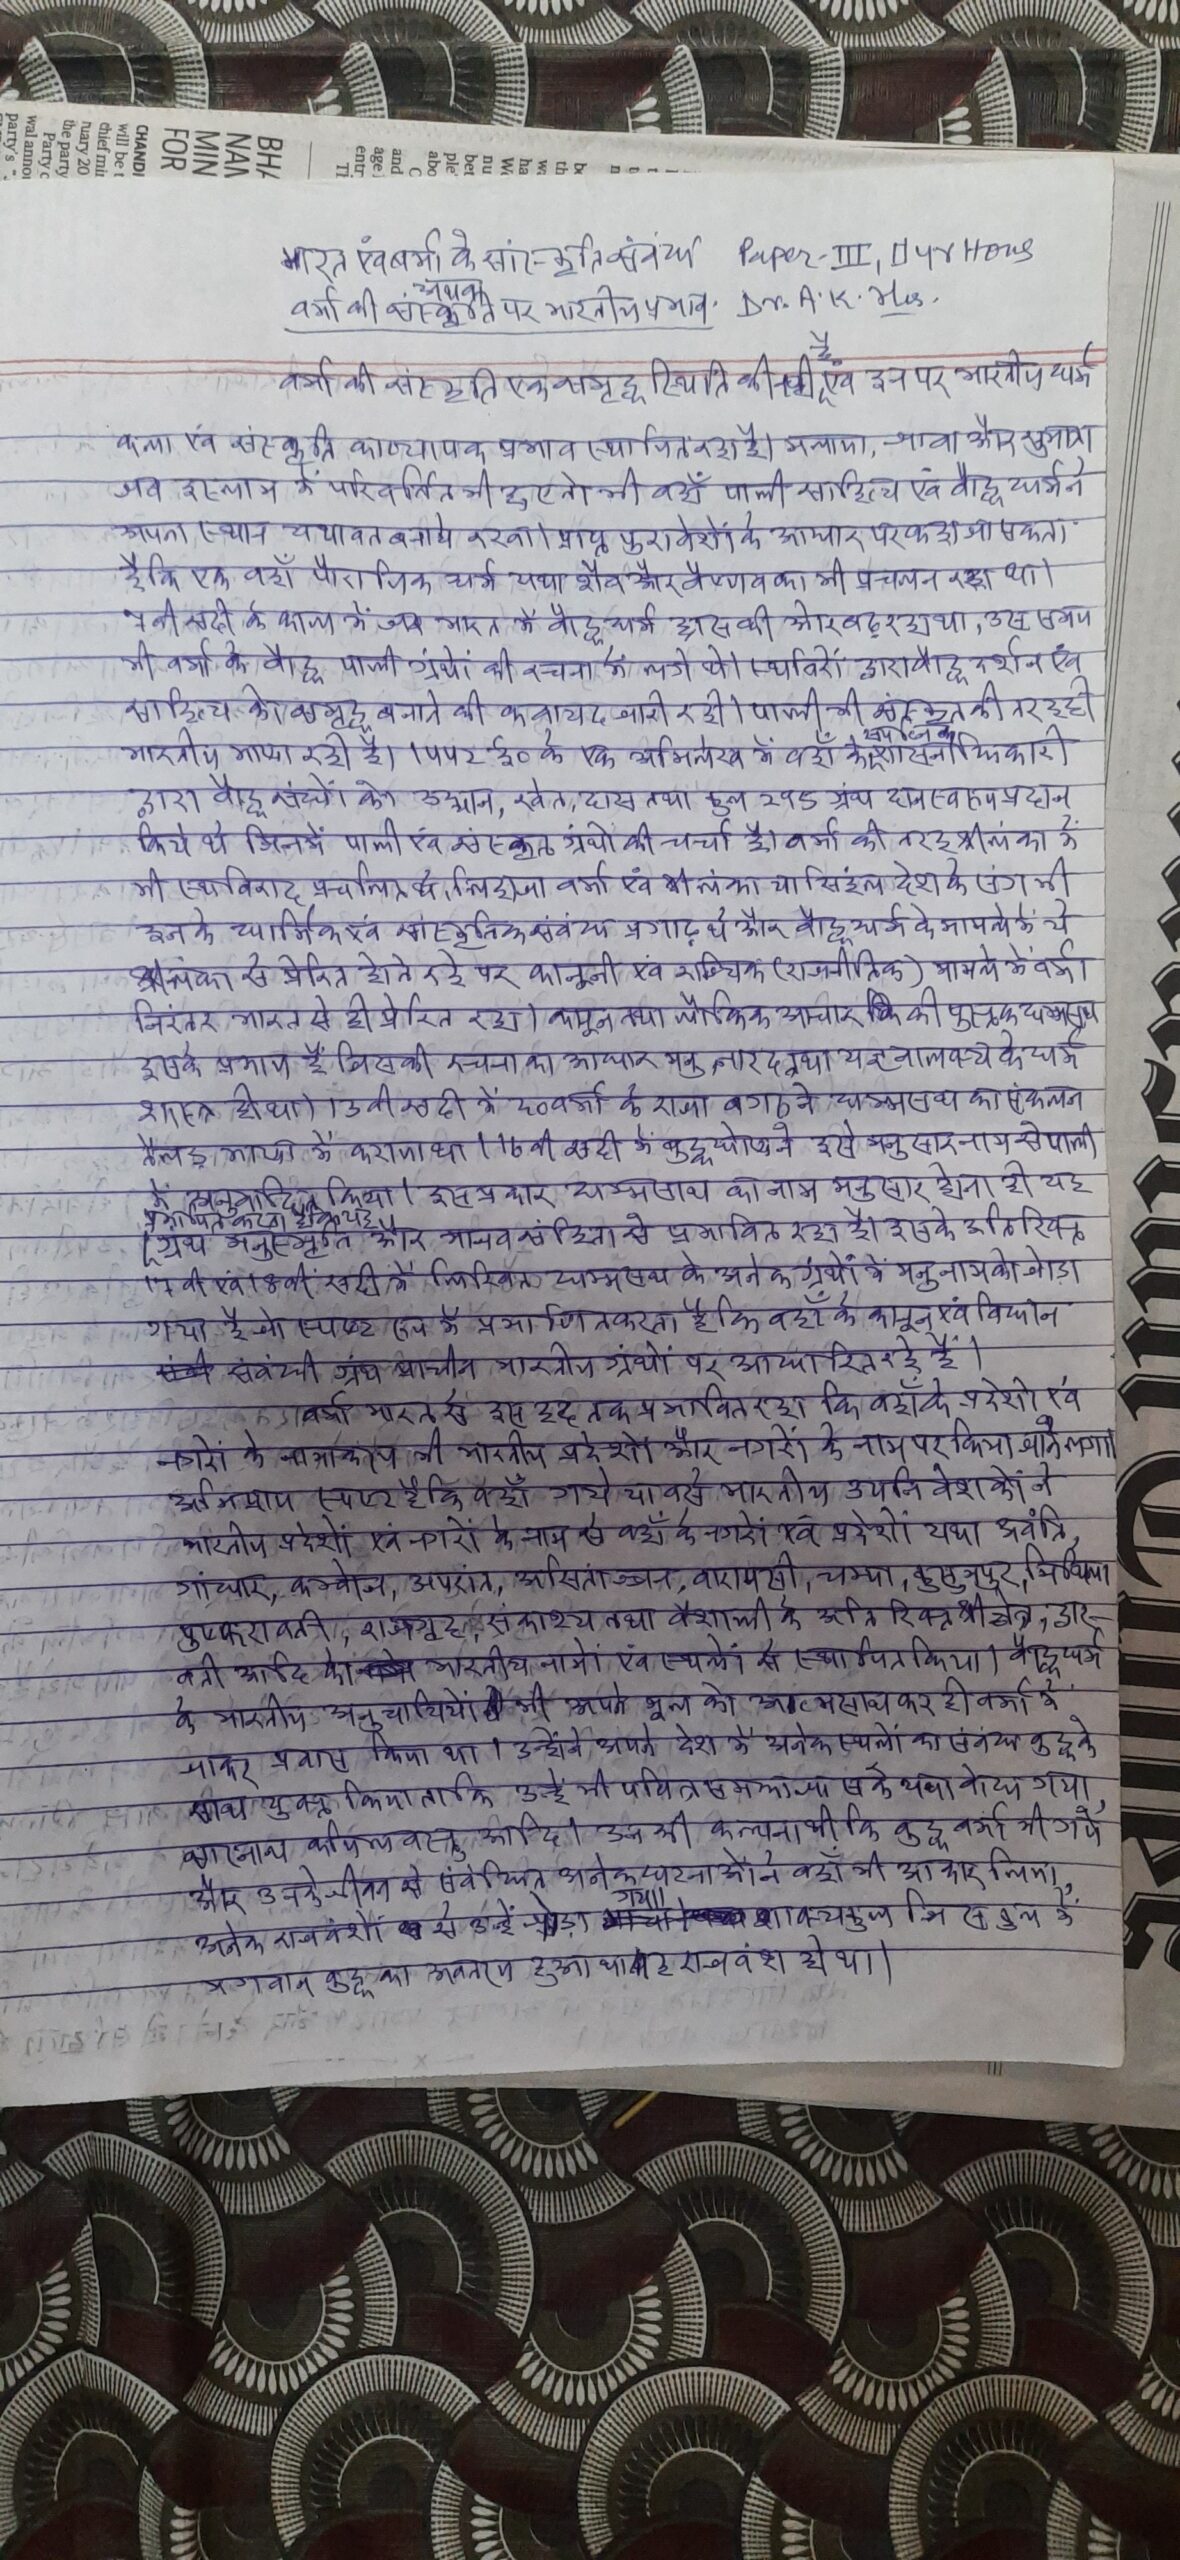 BHA
NAM
MIN
FOR
CHANDI
will be t
chief mi
ruary 20
the party
Party c
wal annou
party's
भारत एवं बर्मा के सांस्कृति संबंध Paper-III, II yr Hons
अथवा
वर्मा की संस्कृति पर भारतीय प्रभाव. Dr. A.K.
वर्मा की संस्कृति एक समृद्ध स्थिति की रही है एवं इन पर भारतीय धर्म
कला एवं संस्कृति का व्यापक प्रभाव स्थापित रहा है। मलाया, जावा और सुमात्रा
जब इस्लाम में परिवर्तित भी हुए तो भी वहाँ पाली साहित्य एवं बौद्ध धर्म ने
अपना स्थान यथावत बनाये रखा। प्राप्त पुरावशेषों के आधार पर कहा जा सकता
है कि एक वहाँ पौराणिक धर्म यथा शैव और वैष्णव का भी प्रचलन रहा था।
वी सदी के काल में जब भारत में बौद्ध धर्म ह्रास की ओर बढ़ रहा था, उस समय
भी वर्मा के बौद्ध पाली ग्रंथों की रचना में लगे थे। स्थविरों द्वारा बौद्ध दर्शन एवं
साहित्य को समृद्ध बनाने की कवायद जारी रही। पाली भी संस्कृत की तरह ही
भारतीय भाषा रही है। 1442 ई० के एक अभिलेख में वहाँ के शासनाधिकारी
द्वारा बौद्ध संघों को उद्यान, खेत, दास तथा कुल 295 ग्रंथ दान स्वरूप प्रदान
किये थे जिनमें पाली एवं संस्कृत ग्रंथों की चर्चा है। वर्मा की तरह श्रीलंका में
भी स्थविरवाद प्रचलित थे, लिहाजा वर्मा एवं श्रीलंका या सिंहल देश के संग भी
इनके धार्मिक एवं सांस्कृतिक संबंध प्रगाढ़ थे और बौद्ध धर्म के मामले में ये
श्रीलंका से प्रेरित होते रहे पर कानूनी एवं (राजनीतिक) मामले में वर्मा
निरंतर भारत से ही प्रेरित रहा। कानून तथा लौकिक आचार की पुस्तक धम्मसथ
इसके प्रमाण हैं जिसकी रचना का आधार मनु नारद तथा याज्ञवल्क्य के धर्म
शास्त्र ही था। 13 वी सदी में वर्मा के राजा ने धम्मसथ का संकलन
तैलङ्ग भाषा में कराया था। 16 वी सदी में बुद्धघोष ने इसे मनुसार नाम से पाली
में अनुवादित किया। इस प्रकार धम्मसाथ का नाम मनुसार होना ही यह
प्रमाणित करता है कि यह
ग्रंथ मनुस्मृति और मानव संहिता से प्रभावित रहा है। इसके अतिरिक्त
17 वी एवं 18 वीं सदी में लिखित धम्मसथ के अनेक ग्रंथों में मनु नाम को जोड़ा
गया है जो स्पष्ट रूप से प्रमाणित करता है कि वहाँ के कानून एवं विधान
संबंधी ग्रंथ प्राचीन भारतीय ग्रंथों पर आधारित रहे हैं।
वर्मा भारत से इस हद तक प्रभावित रहा कि वहाँ के प्रदेशों एवं
नगरों के नामाकरण भी भारतीय प्रदेशों और नगरों के नाम पर किया जाने लगा।
अभिप्राय स्पष्ट है कि वहाँ गये या बसे भारतीय उपनिवेशकों ने
भारतीय प्रदेशों एवं नगरों के नाम से वहाँ के नगरों एवं प्रदेशों यथा अवंति,
गांधार, कम्बोज, अपरांत, असितांजन, वाराणसी, चम्पा, कुसुमपुर, मिथिला
पुष्करावती, राजगृह, संकाश्य तथा वैशाली के अतिरिक्त श्रीक्षेत्र, द्वार-
वती आदि को भारतीय नामों एवं स्थलों से स्थापित किया। बौद्ध धर्म
के भारतीय अनुयायियों ने भी अपने मूल को आत्मसाथ कर ही वर्मा में
जाकर प्रवास किया था। उन्होंने अपने देश में अनेक स्थलों का संबंध बुद्ध के
साथ युक्त किया ताकि उन्हें भी पवित्र समझा जा सके यथा बोध गया,
सारनाथ कपिलवस्तु आदि। उनकी कल्पना थी कि बुद्ध वर्मा भी गये
और उनके जीवन से संबंधित अनेक घटनाओं ने वहाँ भी आकार लिया,
अनेक राजवंशों से उन्हें जोड़ा गया। शाक्यकुल जिस कुल में
भगवान बुद्ध का अवतरण हुआ था वह राजवंश ही था।